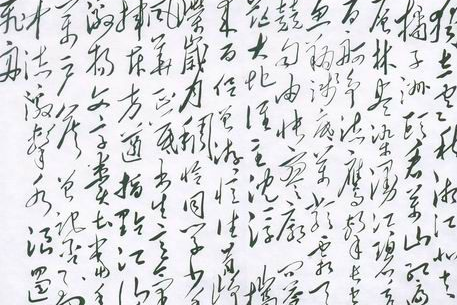 独立寒秋湘江北去
橘子洲头看万山红遍
层林尽染漫江碧透
百舸争流鹰击长空
鱼翔浅底万类霜天
竞自由怅寥廓问
茫大地谁主沉浮携
来百侣曾游忆往昔峥
嵘岁月稠恰同学少年
风华正茂书生意气
挥斥方遒指点江山
激扬文字粪土当年
万户侯曾记否到
中流击水浪遏
飞舟